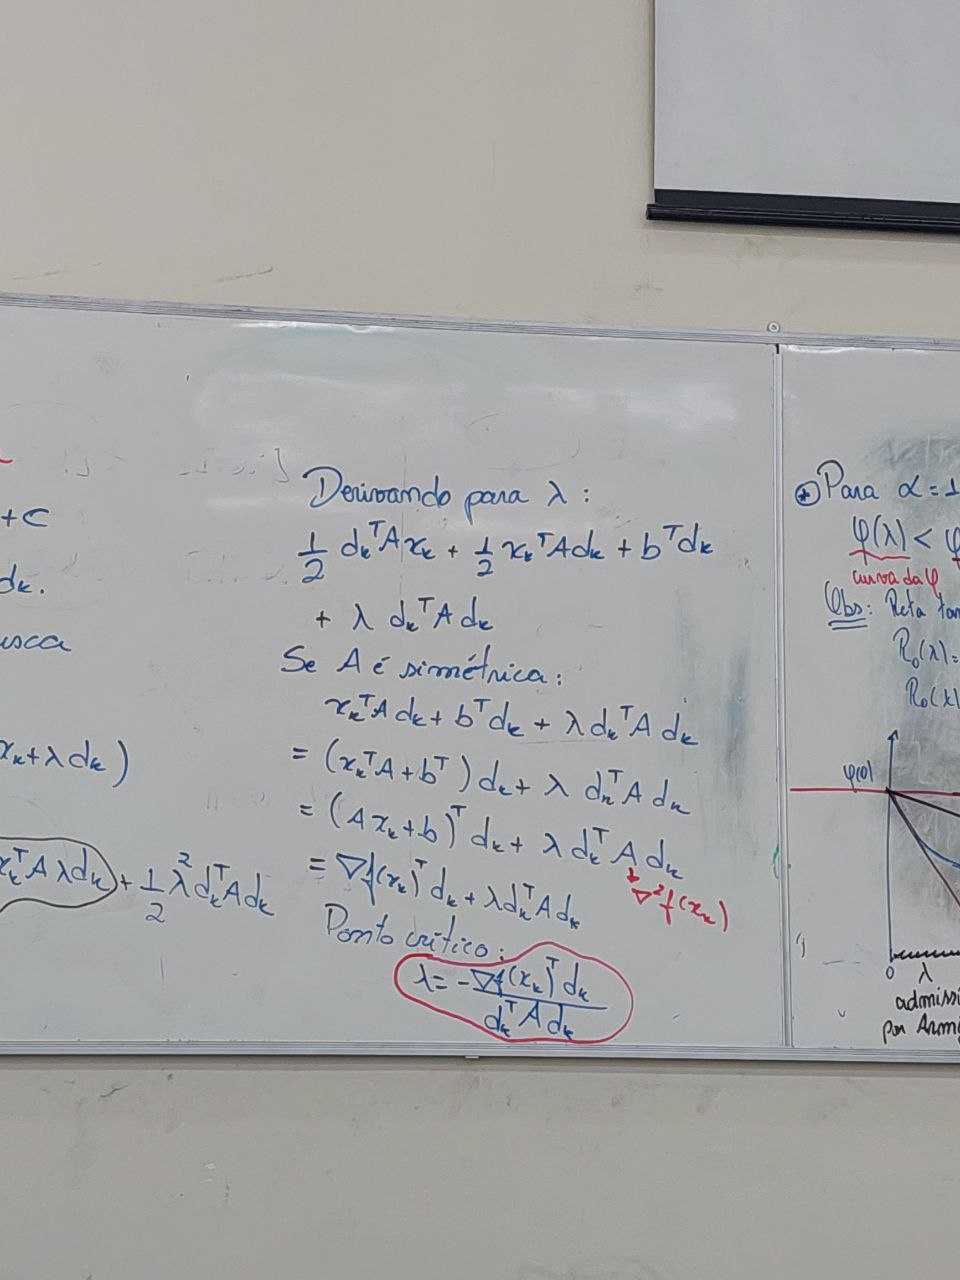 +c
dₖ.
xₖ+λdₖ)
xₖᵀAλdₖ + 1/2 λ²dₖᵀAdₖ
Derivando para λ:
1/2 dₖᵀAxₖ + 1/2 xₖᵀAdₖ + bᵀdₖ
+ λ dₖᵀA dₖ
Se A é simétrica:
xₖᵀA dₖ + bᵀdₖ + λ dₖᵀA dₖ
= (xₖᵀA + bᵀ) dₖ + λ dₖᵀA dₖ
= (Axₖ+b)ᵀ dₖ + λ dₖᵀ A dₖ
= ∇f(xₖ)ᵀdₖ + λdₖᵀAdₖ
∇²f(xₖ)
Ponto crítico:
λ = - ∇f(xₖ)ᵀdₖ / dₖᵀA dₖ
* Para α = 1
φ(λ) < φ
curva da φ
Obs: Reta
R₀(λ)=
φ(0)
0 λ
por